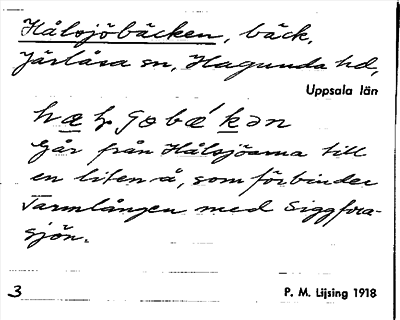 Hålsjöbäcken, bäck,
Järlåsa sn, Hagunda hd,
Uppsala län
går från Hålsjöarna till
en liten å, som förbinder
Tarmlången med Siggfora-
sjön.
3
P. M. Lijsing 1918